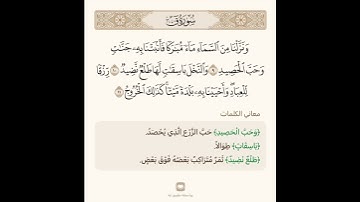 سُورَةُ ق
وَنَزَّلْنَا مِنَ ٱلسَّمَآءِ مَآءً مُّبَٰرَكًا فَأَنۢبَتْنَا بِهِۦ جَنَّٰتٍ
وَحَبَّ ٱلْحَصِيدِ ٩ وَٱلنَّخْلَ بَاسِقَٰتٍ لَّهَا طَلْعٌ نَّضِيدٌ ١٠ رِّزْقًا
لِّلْعِبَادِ وَأَحْيَيْنَا بِهِۦ بَلْدَةً مَّيْتًا كَذَٰلِكَ ٱلْخُرُوجُ ١١
معاني الكلمات
﴿وَحَبَّ الْحَصِيدِ﴾ حَبَّ الزَّرْعِ الَّذِي يُحْصَدُ.
﴿بَاسِقَاتٍ﴾ طِوَالًا.
﴿طَلْعٌ نَضِيدٌ﴾ ثَمَرٌ مُتَرَاكِبٌ بَعْضُهُ فَوْقَ بَعْضٍ.